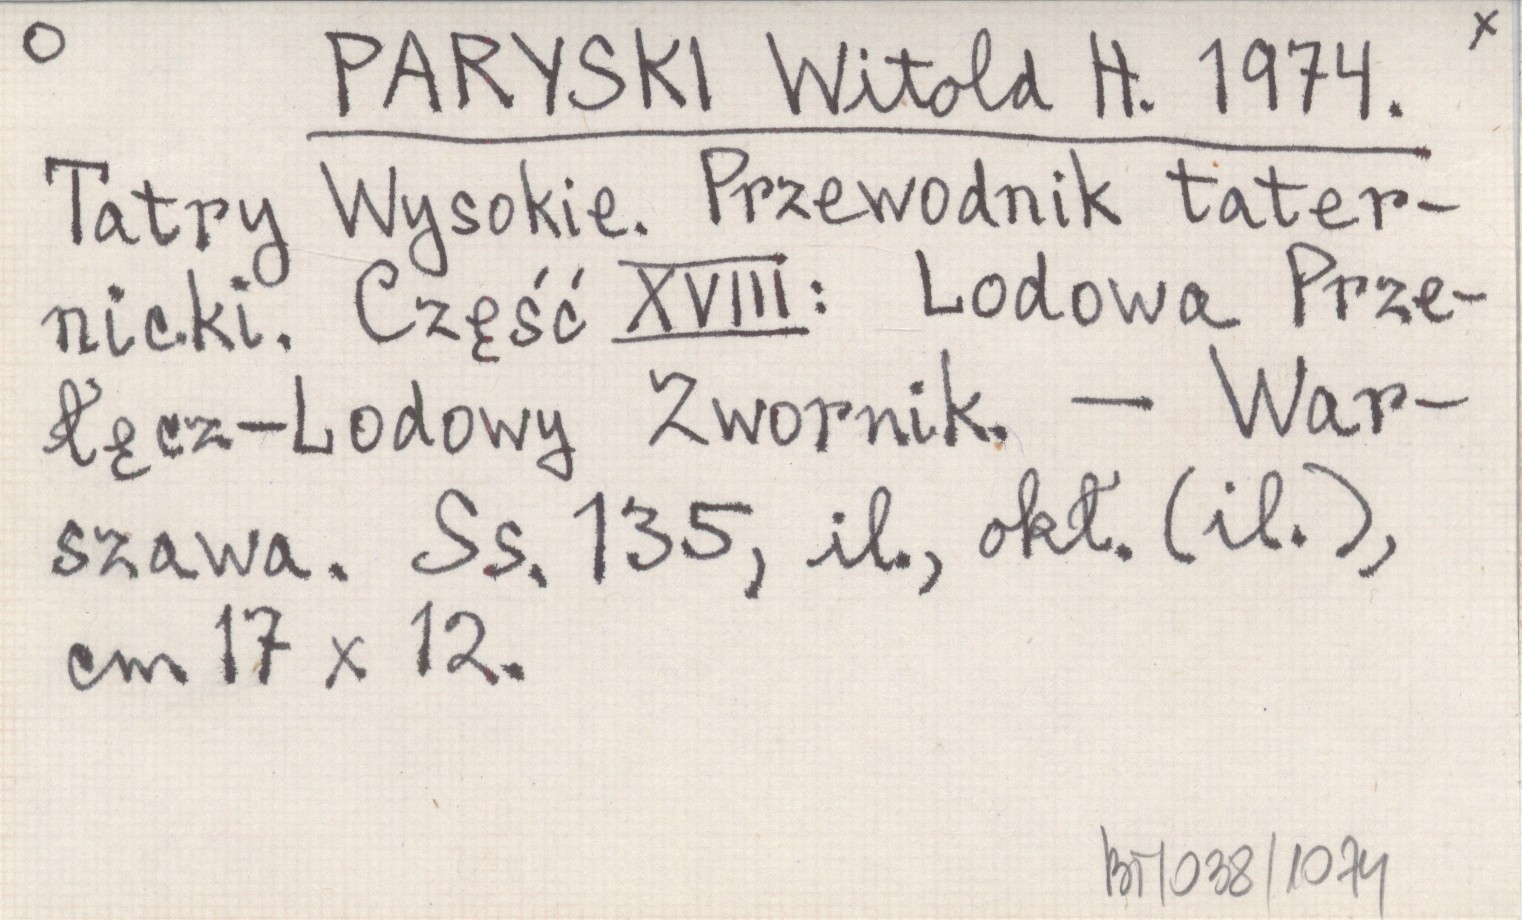 O x
PARYSKI Witold H. 1974.
Tatry Wysokie. Przewodnik tater-
nicki. Część XVIII: Lodowa Prze-
łęcz-Lodowy Zwornik. — War-
szawa. Ss. 135, il., okł. (il.),
cm 17 x 12.
BT/038/1074